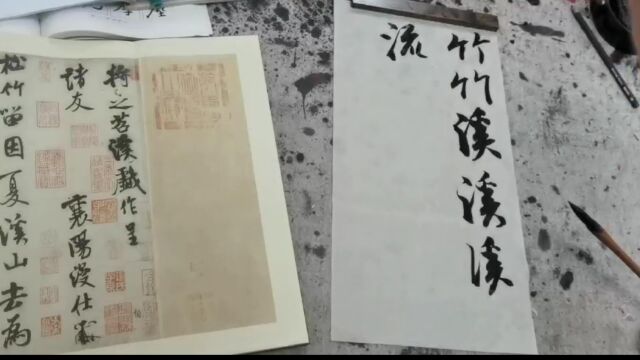 竹竹溪溪溪
流
将之苕溪戲作呈
諸友
襄陽漫仕黻
松竹留因夏溪山去為